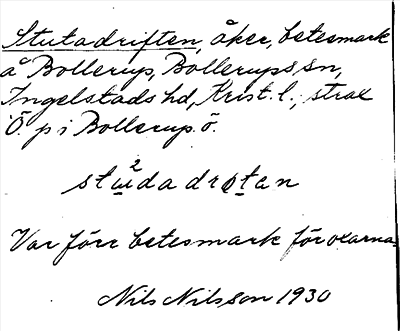 Stutadriften, åker, betesmark
å Bollerup, Bollerups sn,
Ingelstads hd, Krist. l., strax
Ö. p i Bollerup. ö.
stu²dadrotan
Var förr betesmark för oxarna.
Nils Nilsson 1930